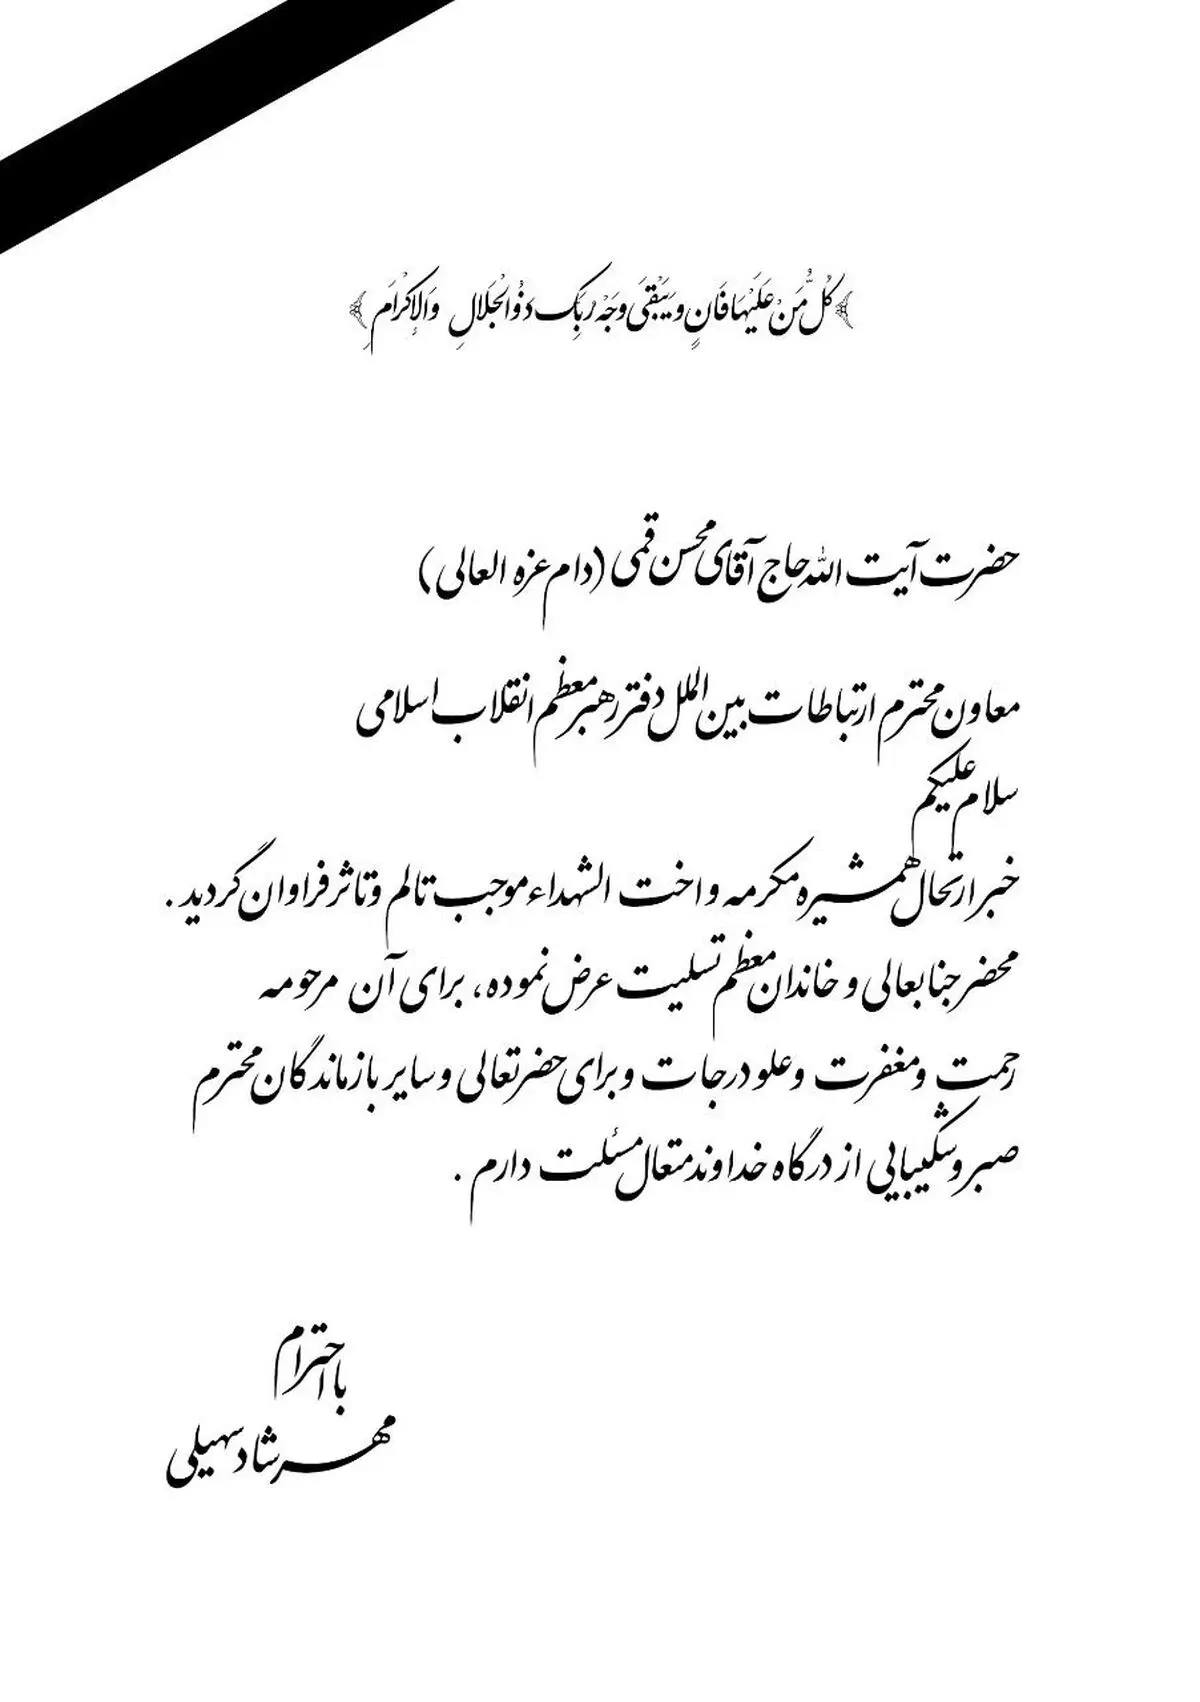 ﴿كُلُّ مَنْ عَلَيْهَا فَانٍ وَيَبْقَى وَجْهُ رَبِّكَ ذُوالْجَلَالِ وَالإِكْرَامِ﴾
حضرت آیت الله حاج آقای محسن قمی (دام عزه العالی)
معاون محترم ارتباطات بین الملل دفتر رهبر معظم انقلاب اسلامی
سلام علیکم
خبر ارتحال همشیره مکرمه و اخت الشهداء موجب تالم و تاثر فراوان گردید .
محضر جنابعالی و خاندان معظم تسلیت عرض نموده، برای آن مرحومه
رحمت و مغفرت و علو درجات و برای حضرتعالی و سایر بازماندگان محترم
صبر و شکیبایی از درگاه خداوند متعال مسئلت دارم .
با احترام
مهرشاد سهیلی